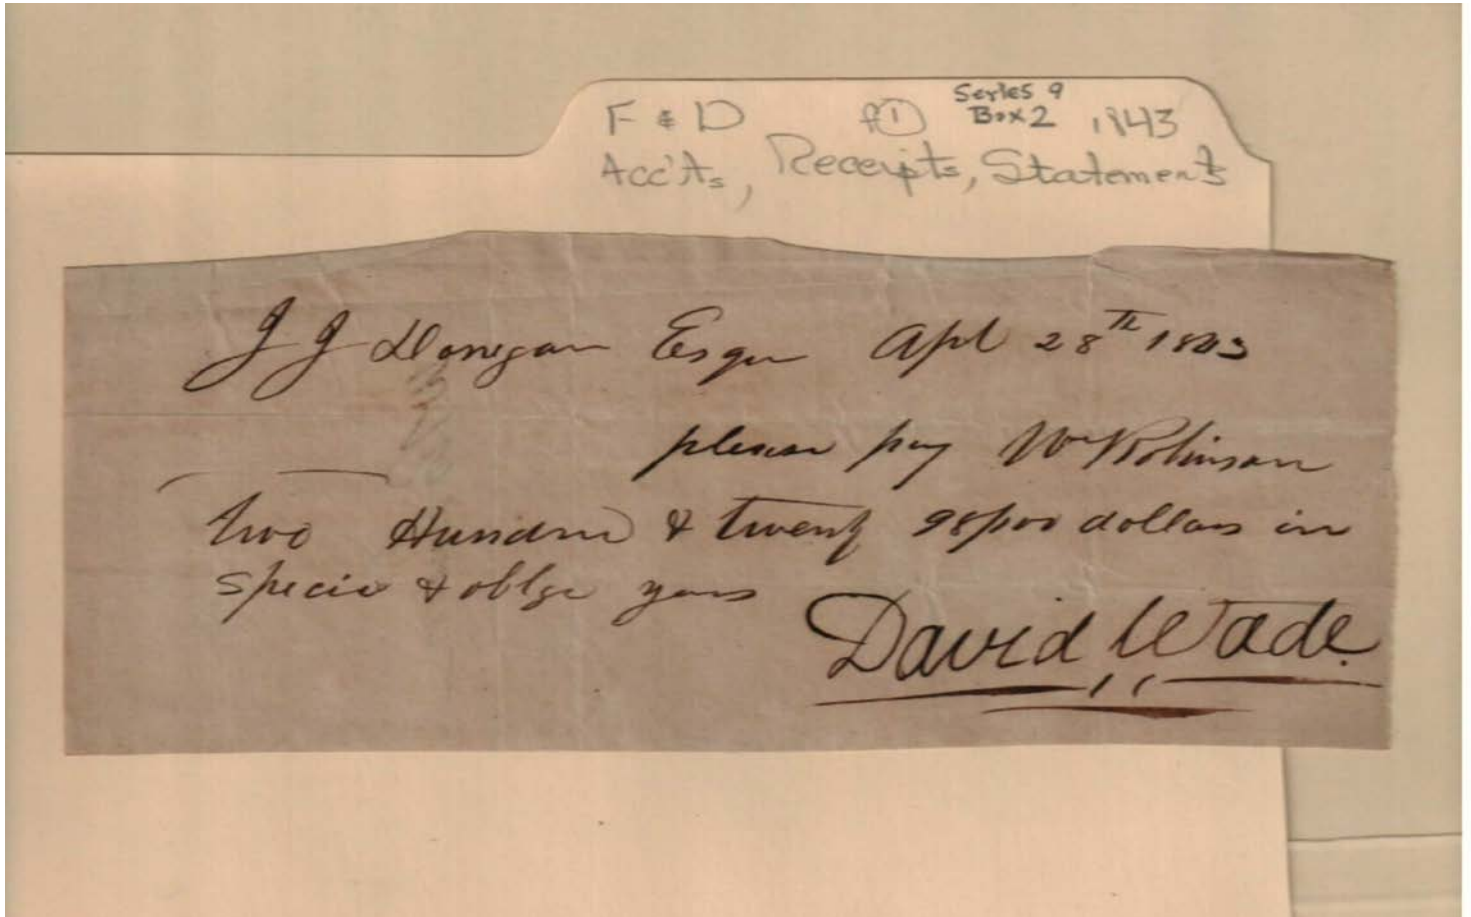 F & D f① Series 9
Box 2 1843
Acc'ts, Receipts, Statements
J J Donegan Esqr Apl 28th 1843
please pay Wm Robinson
two Hundred & twenty 98/100 dollars in
specie & oblge yours
David Wade.